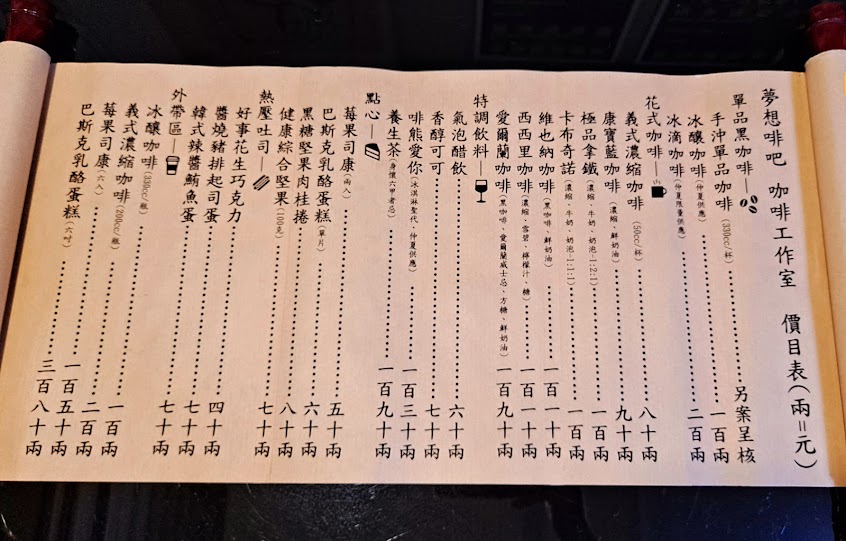 夢想啡吧 咖啡工作室 價目表(兩=元)
單品黑咖啡—
手沖單品咖啡(330cc/杯)……另案呈核
冰釀咖啡(仲夏供應)……一百兩
冰滴咖啡(仲夏限量供應)……二百兩
花式咖啡—
義式濃縮咖啡(50cc/杯)……八十兩
康寶藍咖啡(濃縮、鮮奶油)……九十兩
極品拿鐵(濃縮、牛奶、奶泡-1:2:1)……一百兩
卡布奇諾(濃縮、牛奶、奶泡-1:1:1)……一百兩
維也納咖啡(黑咖啡、鮮奶油)……一百一十兩
西西里咖啡(濃縮、雪碧、檸檬汁、糖)……一百一十兩
愛爾蘭咖啡(黑咖啡、愛爾蘭威士忌、方糖、鮮奶油)……一百九十兩
特調飲料—
氣泡醋飲……六十兩
香醇可可……七十兩
啡熊愛你(冰淇淋聖代、仲夏供應)……一百三十兩
養生茶(身懷六甲者忌)……一百九十兩
點心—
莓果司康(兩入)……五十兩
巴斯克乳酪蛋糕(單片)……六十兩
黑糖堅果肉桂捲……八十兩
健康綜合堅果(100克)……七十兩
熱壓吐司—
好事花生巧克力……四十兩
醬燒豬排起司蛋……七十兩
韓式辣醬鮪魚蛋……七十兩
外帶區—
冰釀咖啡(330cc/瓶)……一百兩
義式濃縮咖啡(200cc/瓶)……二百兩
莓果司康(六入)……一百五十兩
巴斯克乳酪蛋糕(六吋)……三百八十兩